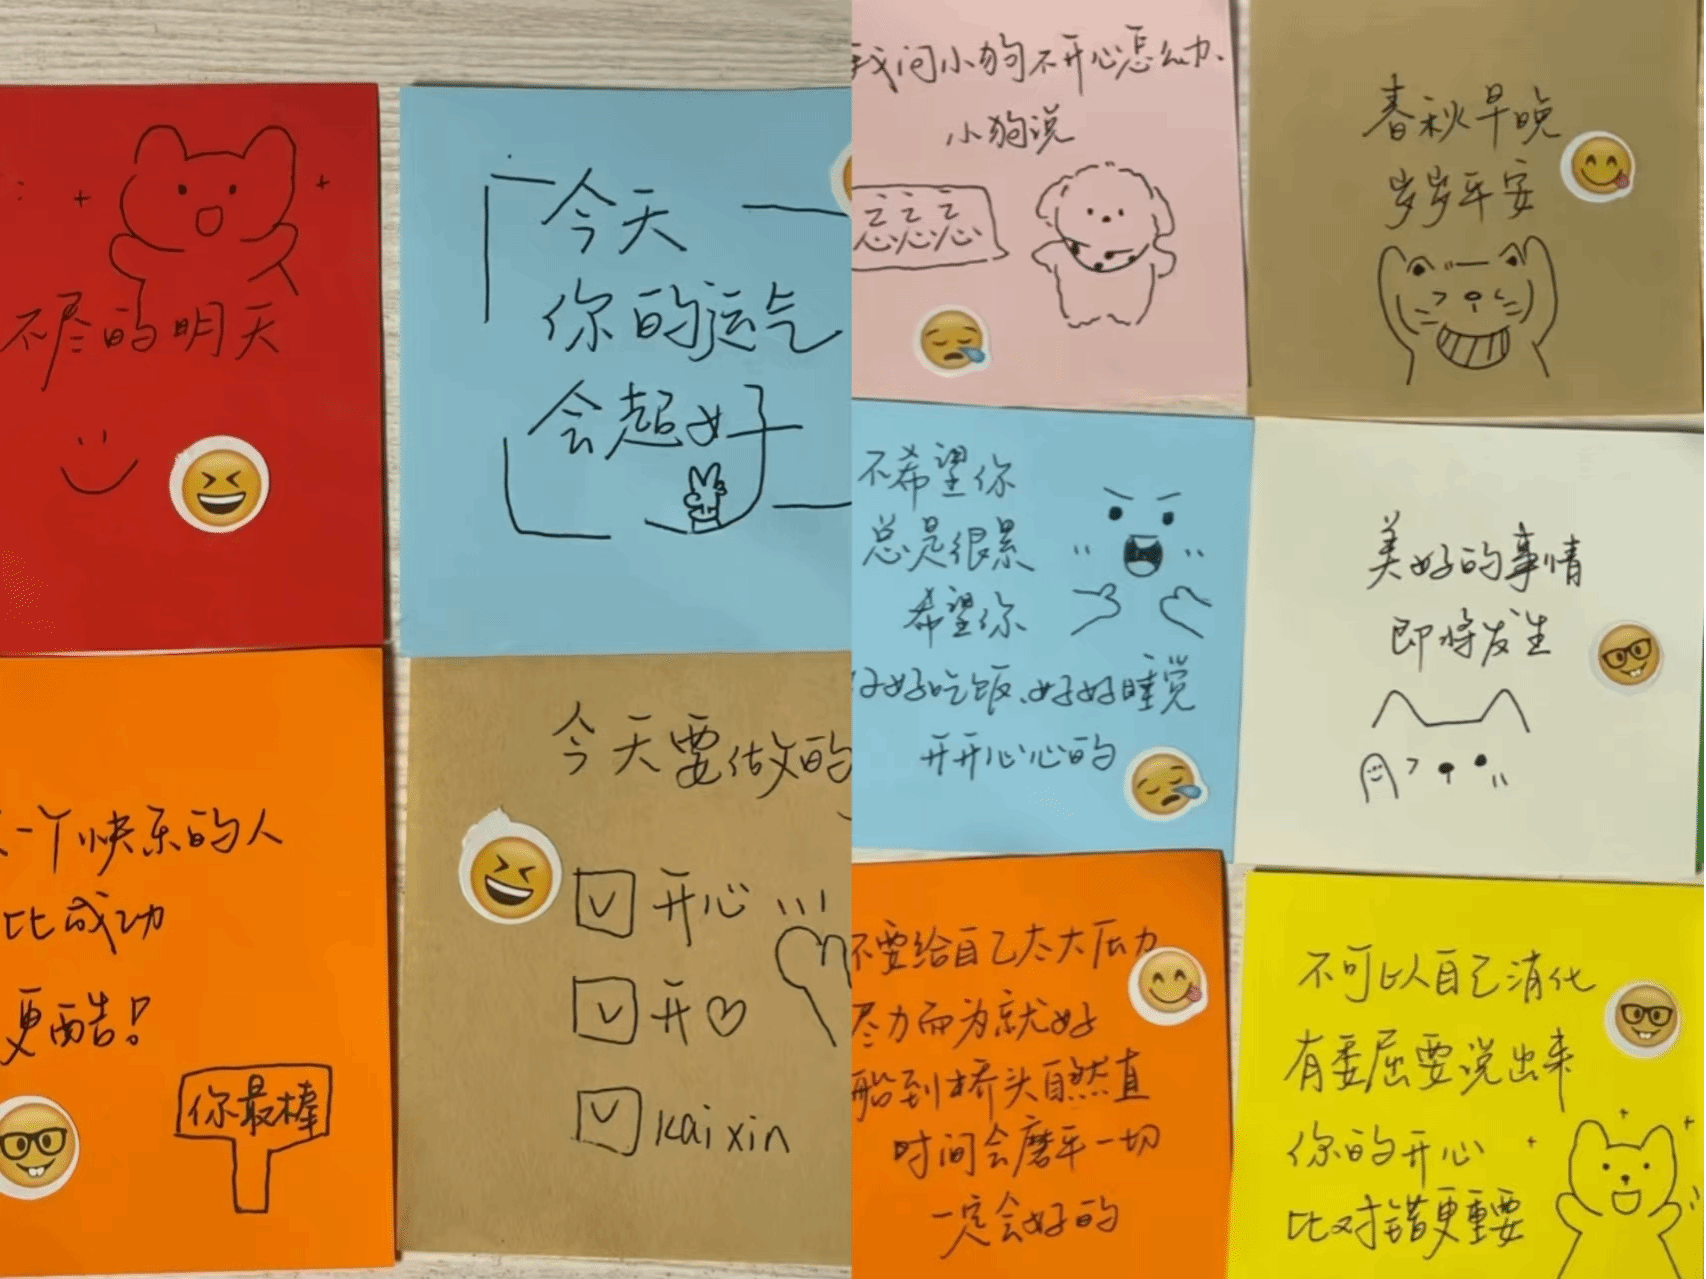 不尽的明天
今天
你的运气
会超好
一个快乐的人
比成功
更酷!
你最棒
今天要做的
开心
开♡
kaixin
我问小狗不开心怎么办
小狗说
忘忘忘
春秋早晚
岁岁平安
不希望你
总是很累
希望你
好好吃饭、好好睡觉
开开心心的
美好的事情
即将发生
不要给自己太大压力
尽力而为就好
船到桥头自然直
时间会磨平一切
一定会好的
不可以自己消化
有委屈要说出来
你的开心
比对错更重要